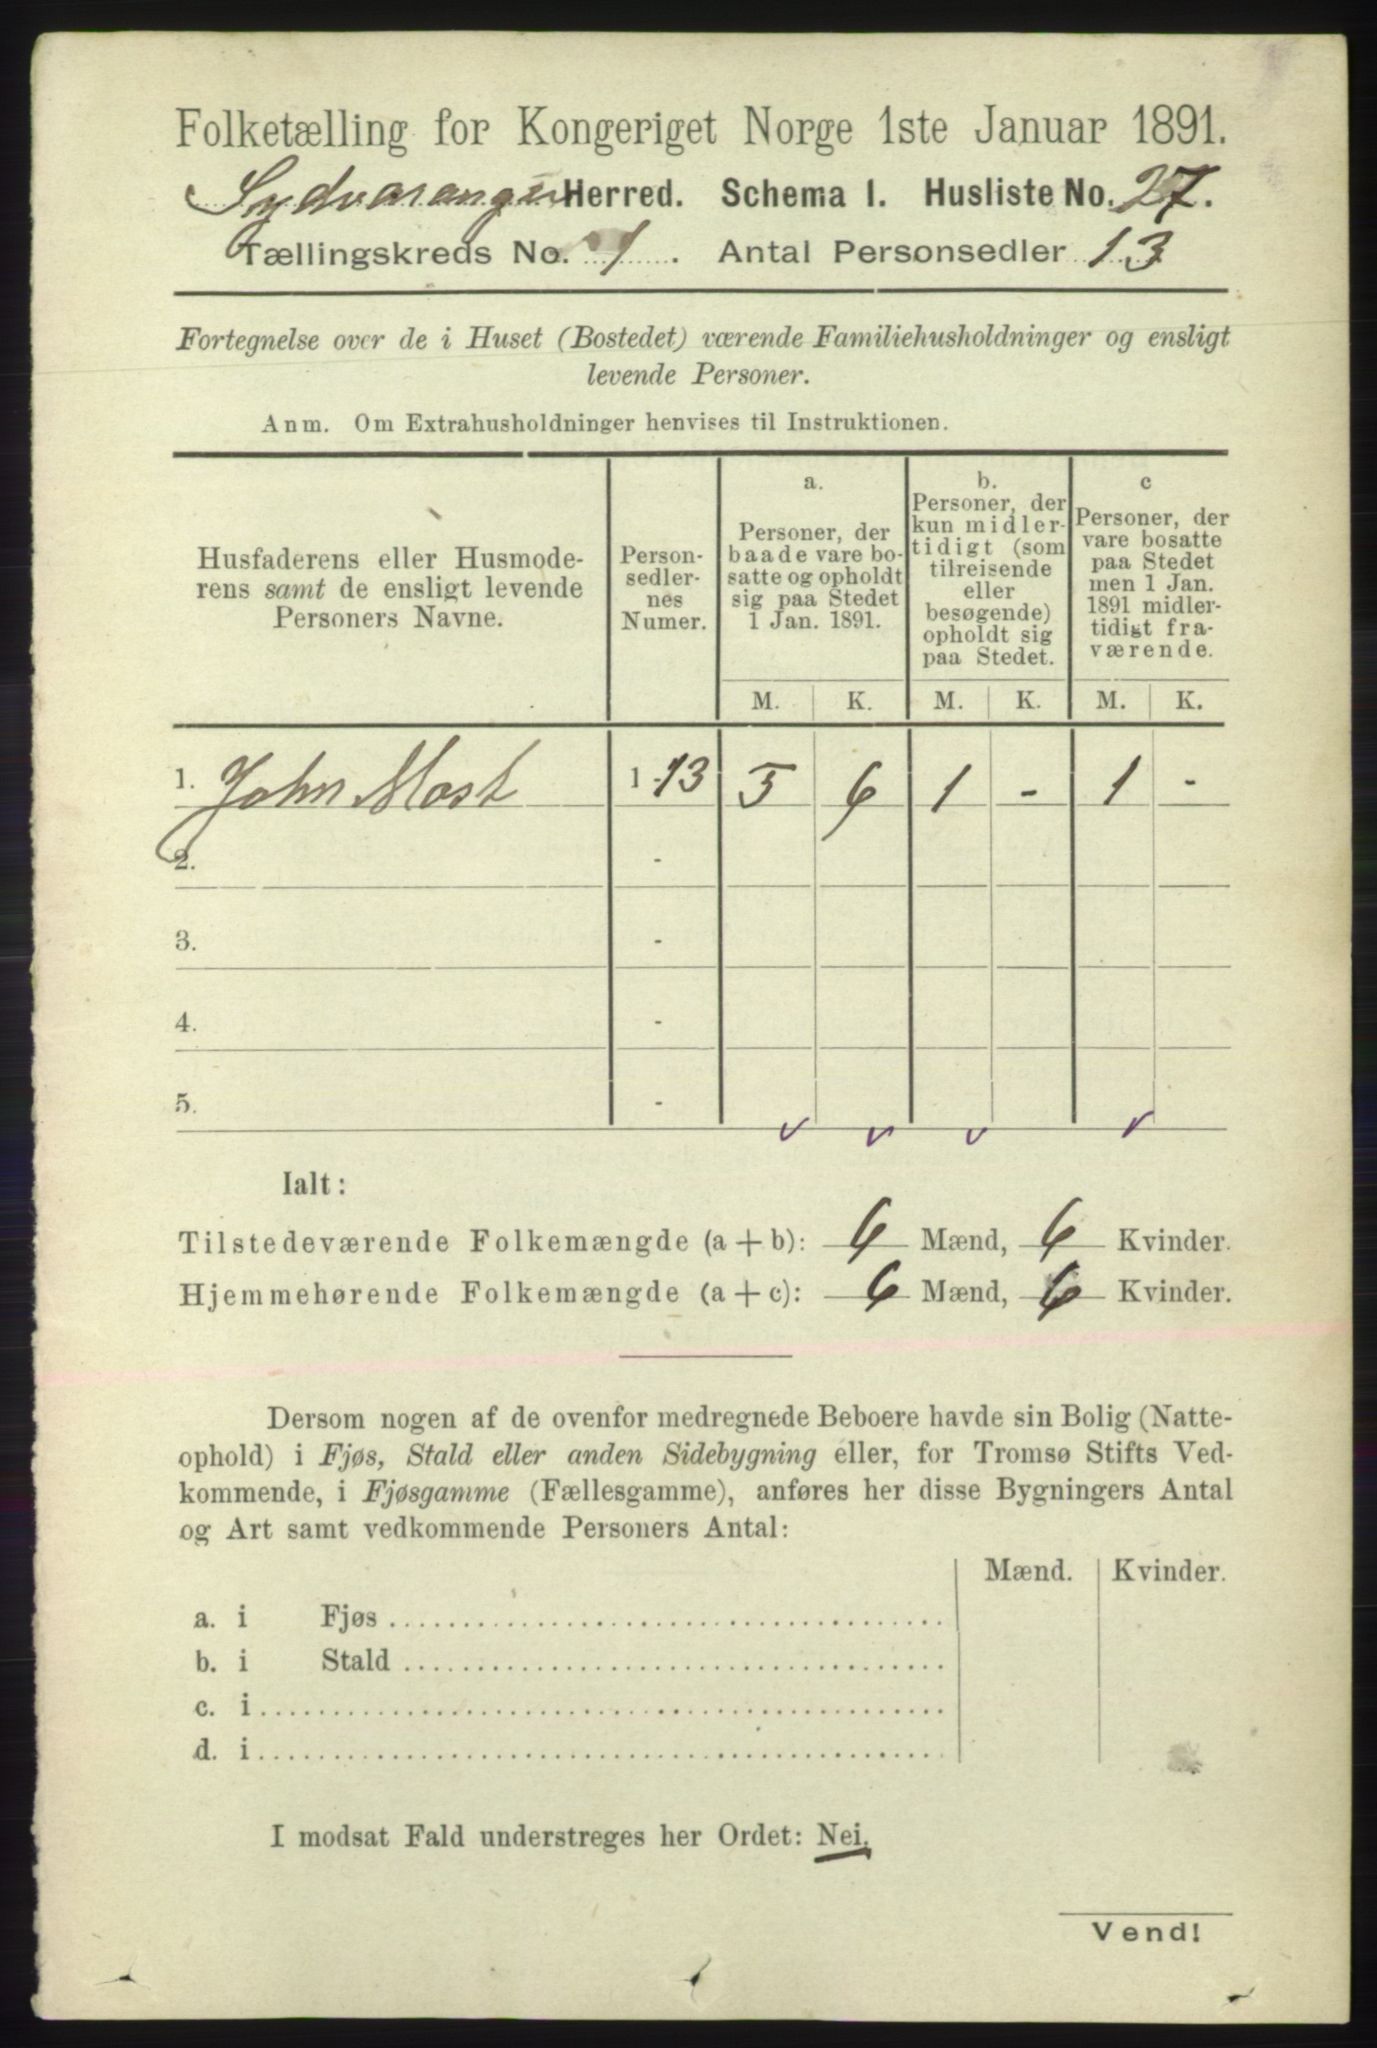 Folketælling for Kongeriget Norge 1ste Januar 1891.
Sydvaranger Herred. Schema I. Husliste No. 27.
Tællingskreds No. 1. Antal Personsedler 13
Fortegnelse over de i Huset (Bostedet) værende Familiehusholdninger og ensligt
levende Personer.
Anm. Om Extrahusholdninger henvises til Instruktionen.
Husfaderens eller Husmode-
rens samt de ensligt levende
Personers Navne.
Person-
sedler-
nes
Numer.
a.
Personer, der
baade vare bo-
satte og opholdt
sig paa Stedet
1 Jan. 1891.
b.
Personer, der
kun midler-
tidigt (som
tilreisende
eller
besøgende)
opholdt sig
paa Stedet.
c
Personer, der
vare bosatte
paa Stedet
men 1 Jan.
1891 midler-
tidigt fra-
værende.
M. K. M. K. M. K.
1. John Mast 1 - 13 5 6 1 - 1 -
2. -
3. -
4. -
5. -
Ialt:
Tilstedeværende Folkemængde (a + b): 6 Mænd, 6 Kvinder.
Hjemmehørende Folkemængde (a + c): 6 Mænd, 6 Kvinder.
Dersom nogen af de ovenfor medregnede Beboere havde sin Bolig (Natte-
ophold) i Fjøs, Stald eller anden Sidebygning eller, for Tromsø Stifts Ved-
kommende, i Fjøsgamme (Fællesgamme), anføres her disse Bygningers Antal
og Art samt vedkommende Personers Antal:
Mænd. Kvinder.
a. i Fjøs
b. i Stald
c. i
d. i
I modsat Fald understreges her Ordet: Nei.
Vend!